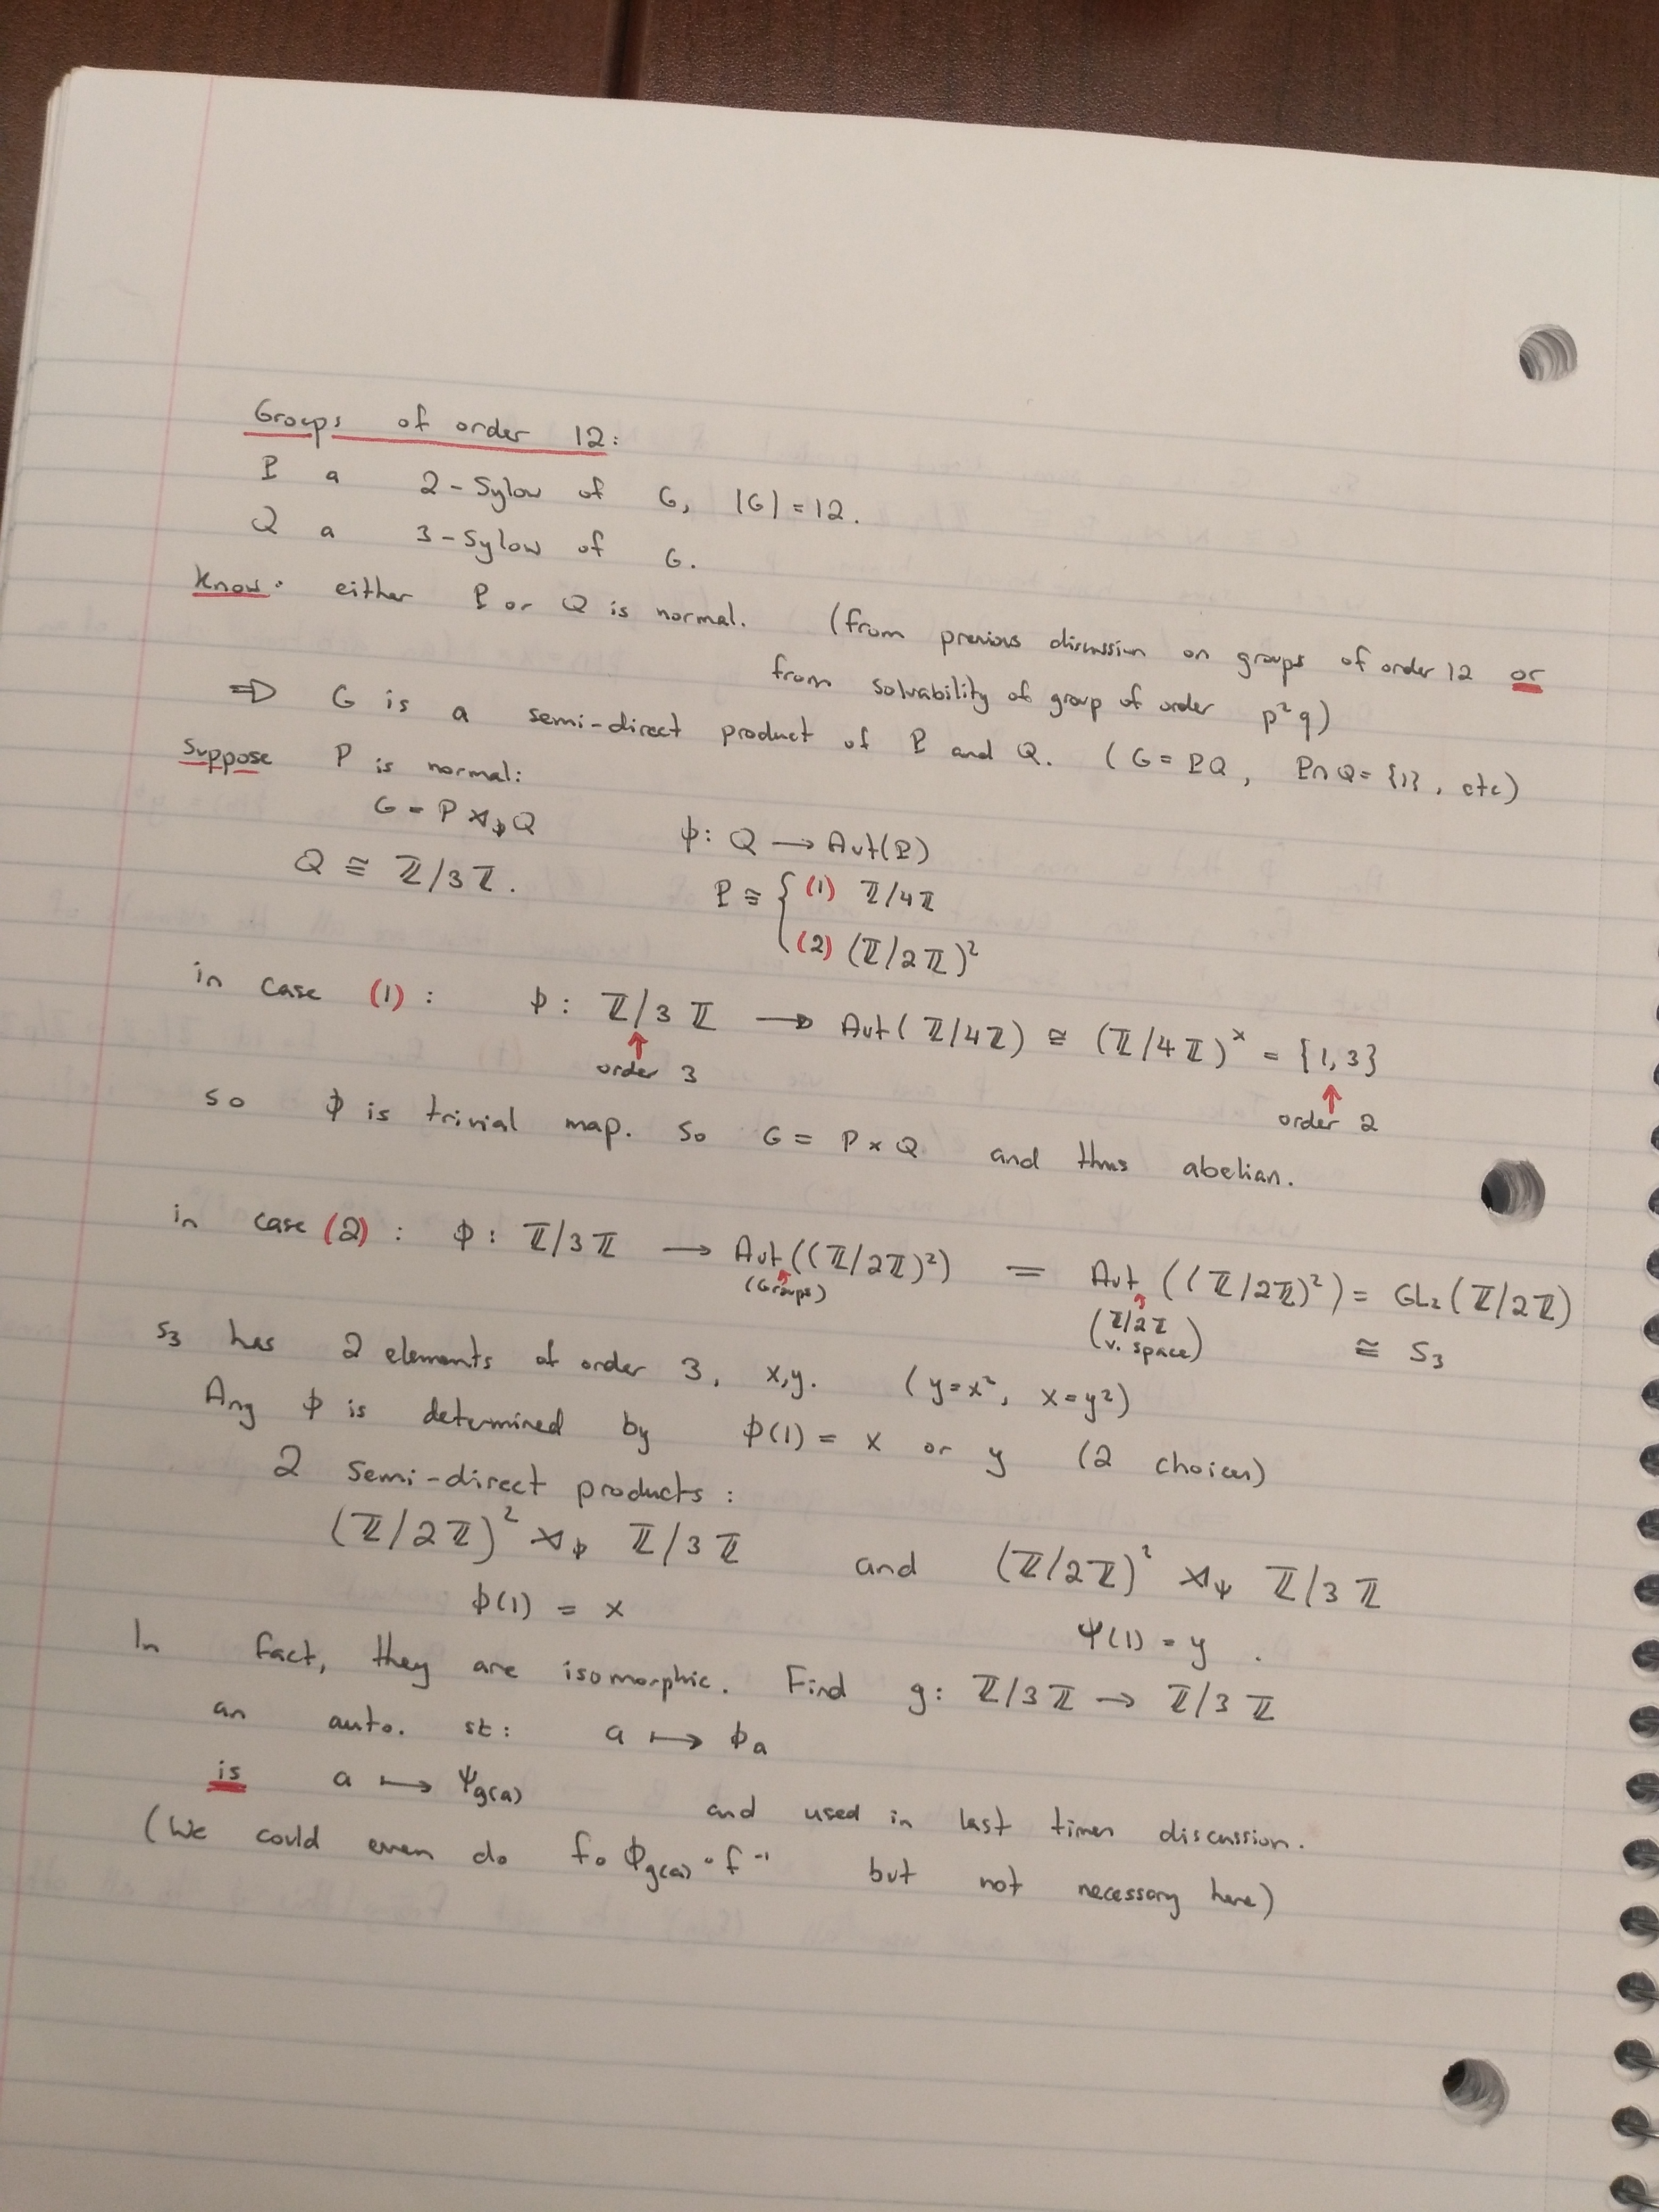 Groups of order 12:
P a 2-Sylow of G, |G| = 12.
Q a 3-Sylow of G.
Know: either P or Q is normal. (from previous discussion on groups of order 12 or
from solvability of group of order p²q)
⇒ G is a semi-direct product of P and Q. (G = PQ, P∩Q = {1}, etc)
Suppose P is normal:
G = P ⋊_ϕ Q ϕ: Q → Aut(P)
Q ≅ ℤ/3ℤ. P ≅ { (1) ℤ/4ℤ
(2) (ℤ/2ℤ)²
in case (1): ϕ: ℤ/3ℤ → Aut(ℤ/4ℤ) ≅ (ℤ/4ℤ)^× = {1,3}
↑ order 3 ↑ order 2
so ϕ is trivial map. So G = P × Q and thus abelian.
in case (2): ϕ: ℤ/3ℤ → Aut((ℤ/2ℤ)²) = Aut((ℤ/2ℤ)²) = GL₂(ℤ/2ℤ)
(Groups) (ℤ/2ℤ v. space) ≅ S₃
S₃ has 2 elements of order 3, x,y. (y=x², x=y²)
Any ϕ is determined by ϕ(1) = x or y (2 choices)
2 semi-direct products:
(ℤ/2ℤ)² ⋊_ϕ ℤ/3ℤ and (ℤ/2ℤ)² ⋊_ψ ℤ/3ℤ
ϕ(1) = x ψ(1) = y.
In fact, they are isomorphic. Find g: ℤ/3ℤ → ℤ/3ℤ
an auto. st: a ↦ ϕ_a
is a ↦ ψ_g(a) and used in last times discussion.
(We could even do f∘ϕ_g(a)∘f⁻¹ but not necessary here)